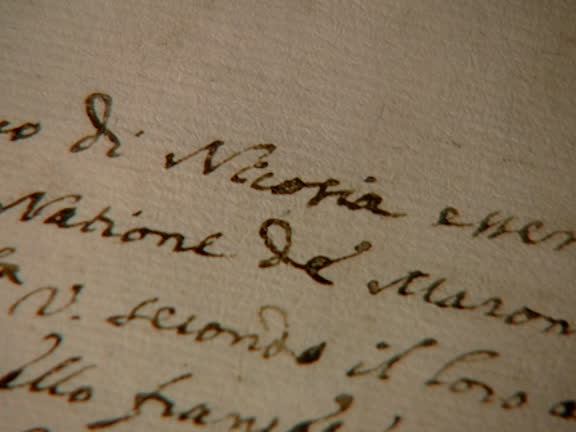 di Nicosia essen
Natione de Maron
V. secondo il loro a